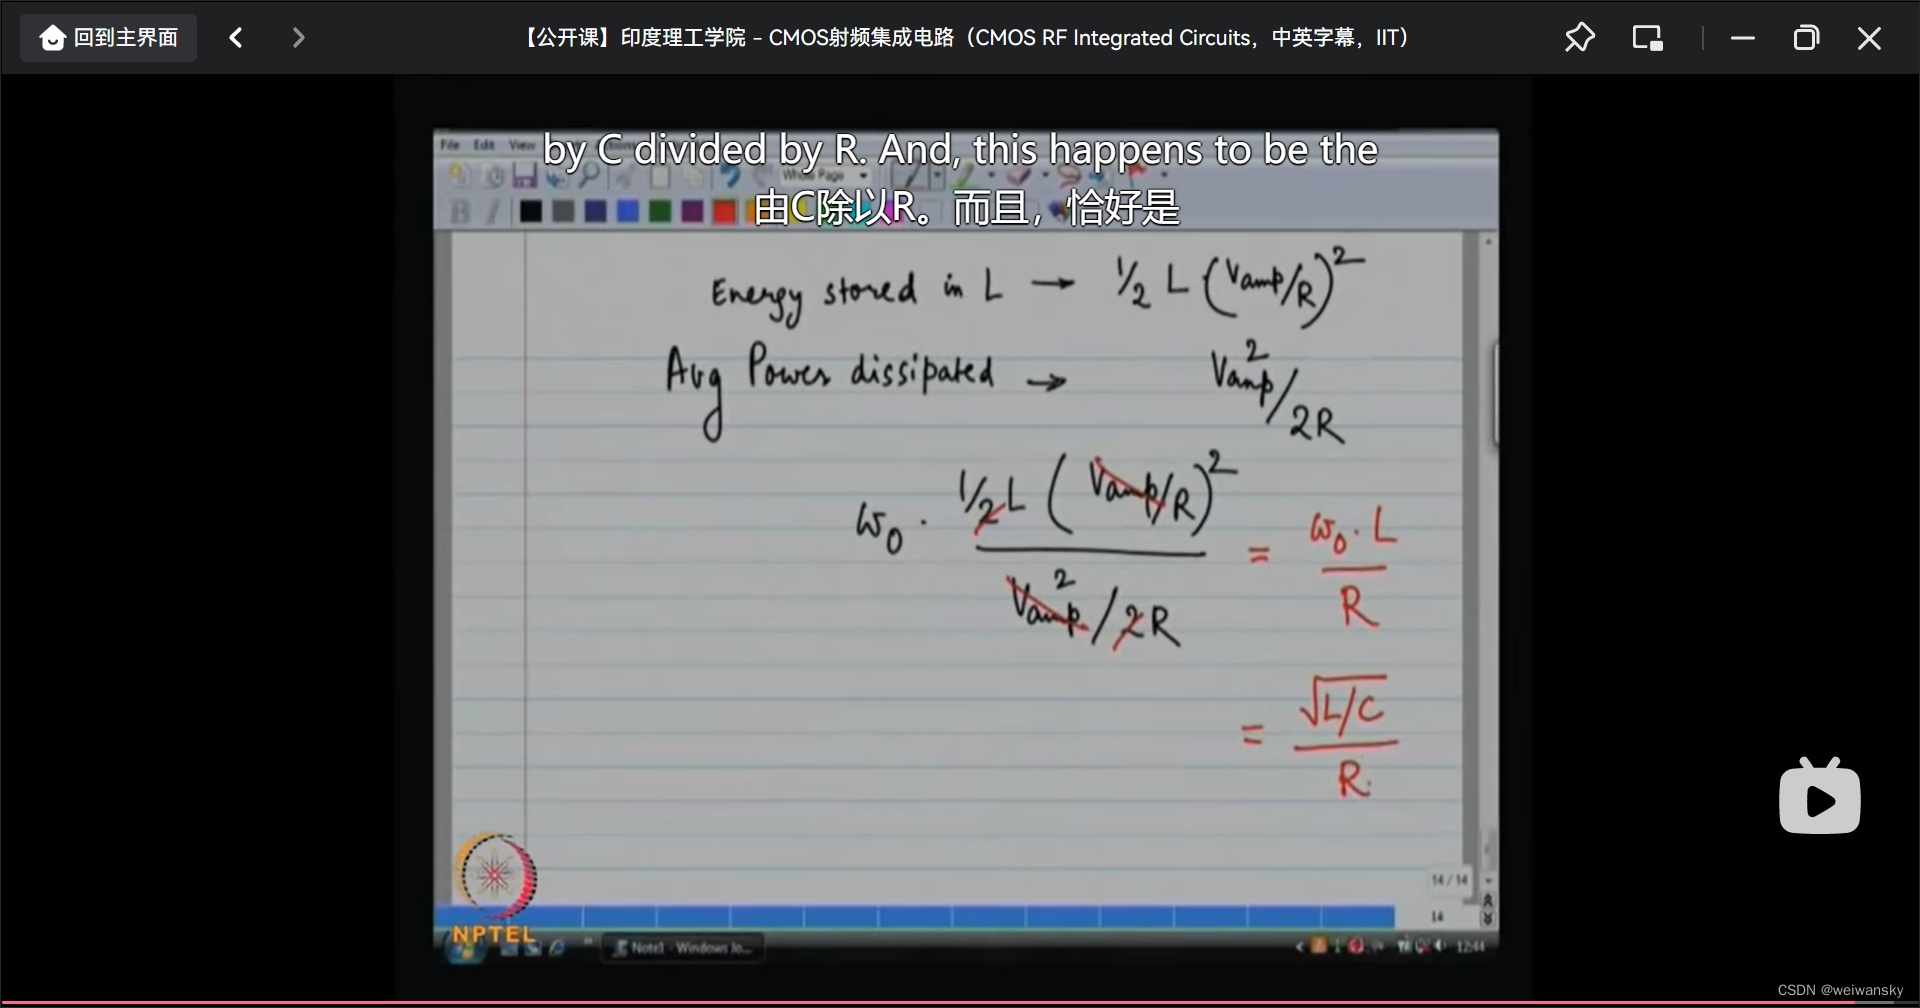 回到主界面
【公开课】印度理工学院 – CMOS射频集成电路（CMOS RF Integrated Circuits，中英字幕，IIT）
by C divided by R. And, this happens to be the
由C除以R。而且，恰好是
File Edit View
Whole Page
B I
Energy stored in L → 1/2 L (Vamp/R)²
Avg Power dissipated → Vamp²/2R
ω₀ · 1/2 L (Vamp/R)² / Vamp²/2R = ω₀ · L / R
= √L/C / R
14 / 14
14
NPTEL
Note1 - Windows Jo...
12:44
CSDN @weiwansky